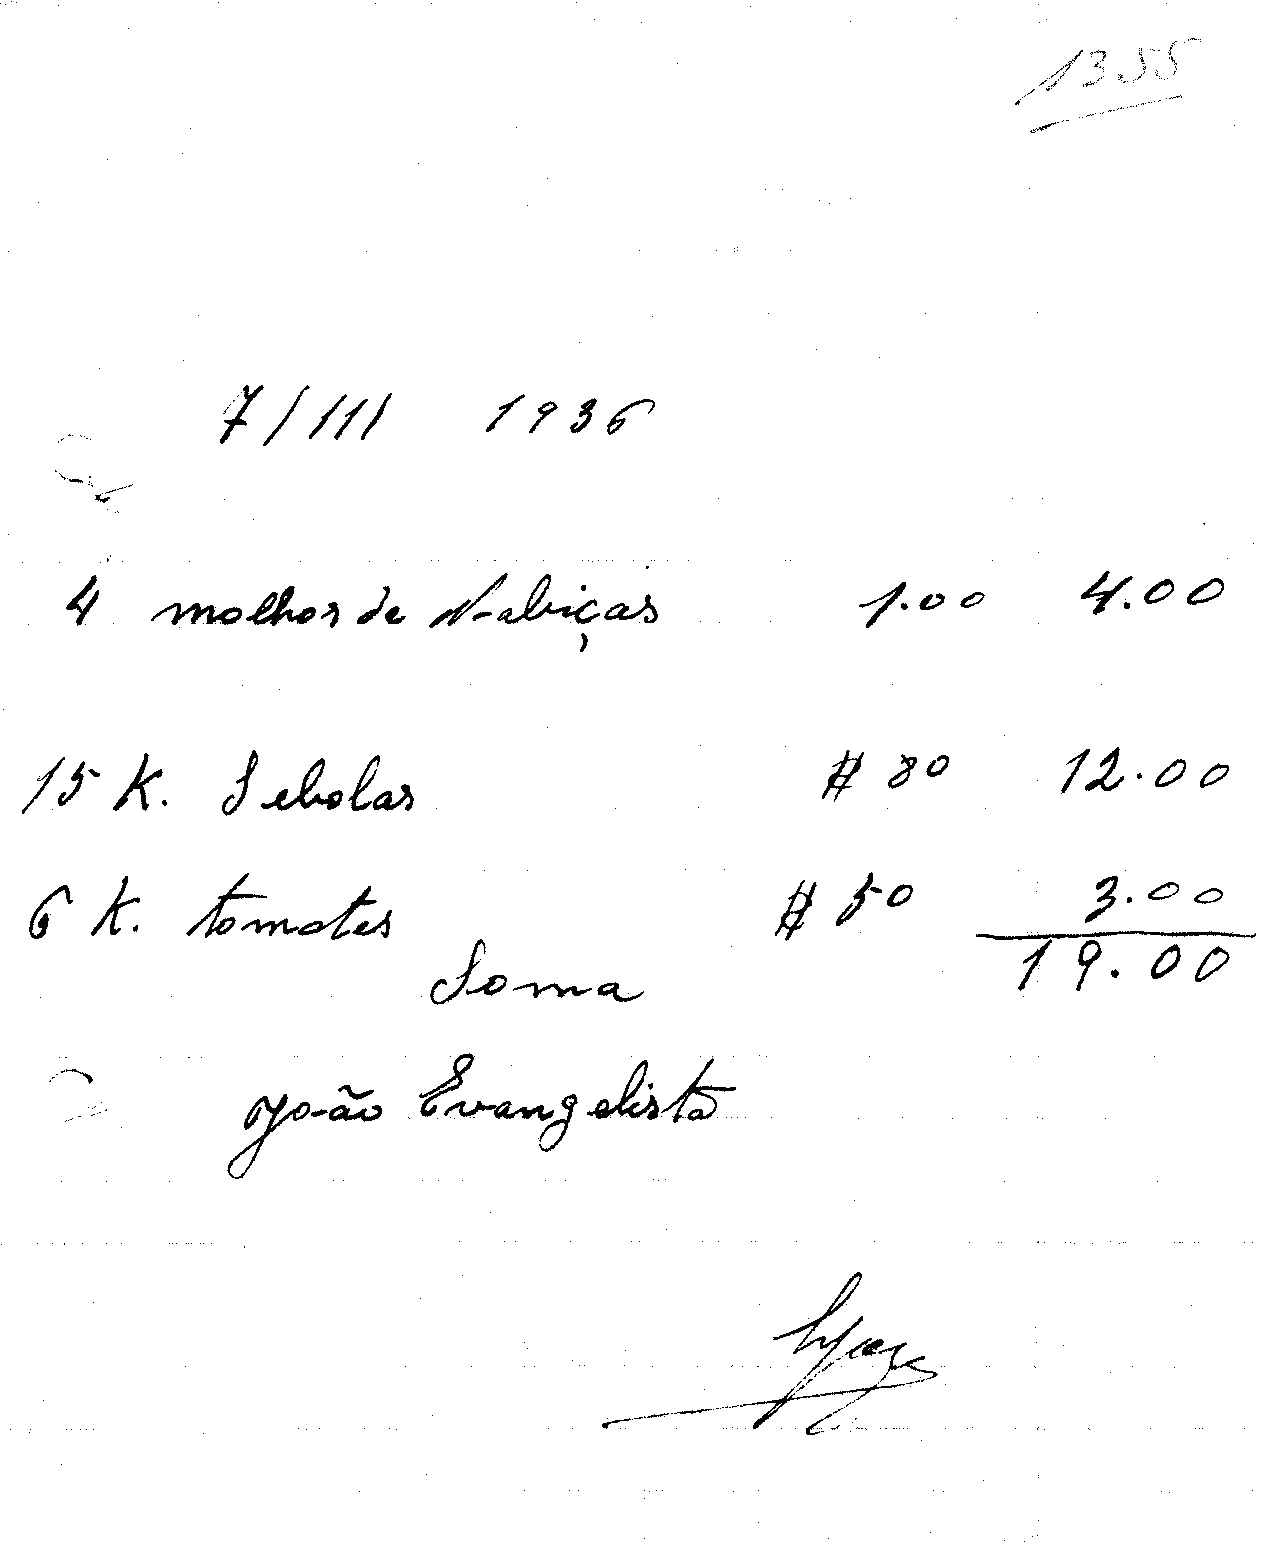 1355
7/III 1936
4 molhos de Nabiças 1.00 4.00
15 K. Sebolas $ 80 12.00
6 K. tomates $ 50 3.00
Soma 19.00
João Evangelista